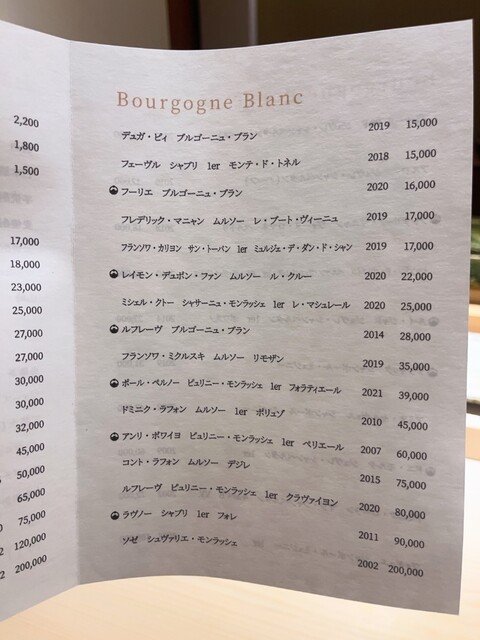 2,200
1,800
1,500
17,000
18,000
23,000
25,000
27,000
27,000
30,000
30,000
32,000
45,000
50,000
65,000
75,000
2 120,000
2 200,000
Bourgogne Blanc
デュガ・ピィ ブルゴーニュ・ブラン 2019 15,000
フェーヴル シャブリ 1er モンテ・ド・トネル 2018 15,000
フーリエ ブルゴーニュ・ブラン 2020 16,000
フレデリック・マニャン ムルソー レ・プート・ヴィーニュ 2019 17,000
フランソワ・カリヨン サン・トーバン 1er ミュルジェ・デ・ダン・ド・シャン 2019 17,000
レイモン・デュポン・ファン ムルソー ル・クルー 2020 22,000
ミシェル・クトー シャサーニュ・モンラッシェ 1er レ・マシュレール 2020 25,000
ルフレーヴ ブルゴーニュ・ブラン 2014 28,000
フランソワ・ミクルスキ ムルソー リモザン 2019 35,000
ポール・ペルノー ピュリニー・モンラッシェ 1er フォラティエール 2021 39,000
ドミニク・ラフォン ムルソー 1er ポリュゾ 2010 45,000
アンリ・ボワイヨ ピュリニー・モンラッシェ 1er ペリエール 2007 60,000
コント・ラフォン ムルソー デジレ 2015 75,000
ルフレーヴ ピュリニー・モンラッシェ 1er クラヴァイヨン 2020 80,000
ラヴノー シャブリ 1er フォレ 2011 90,000
ソゼ シュヴァリエ・モンラッシェ 2002 200,000